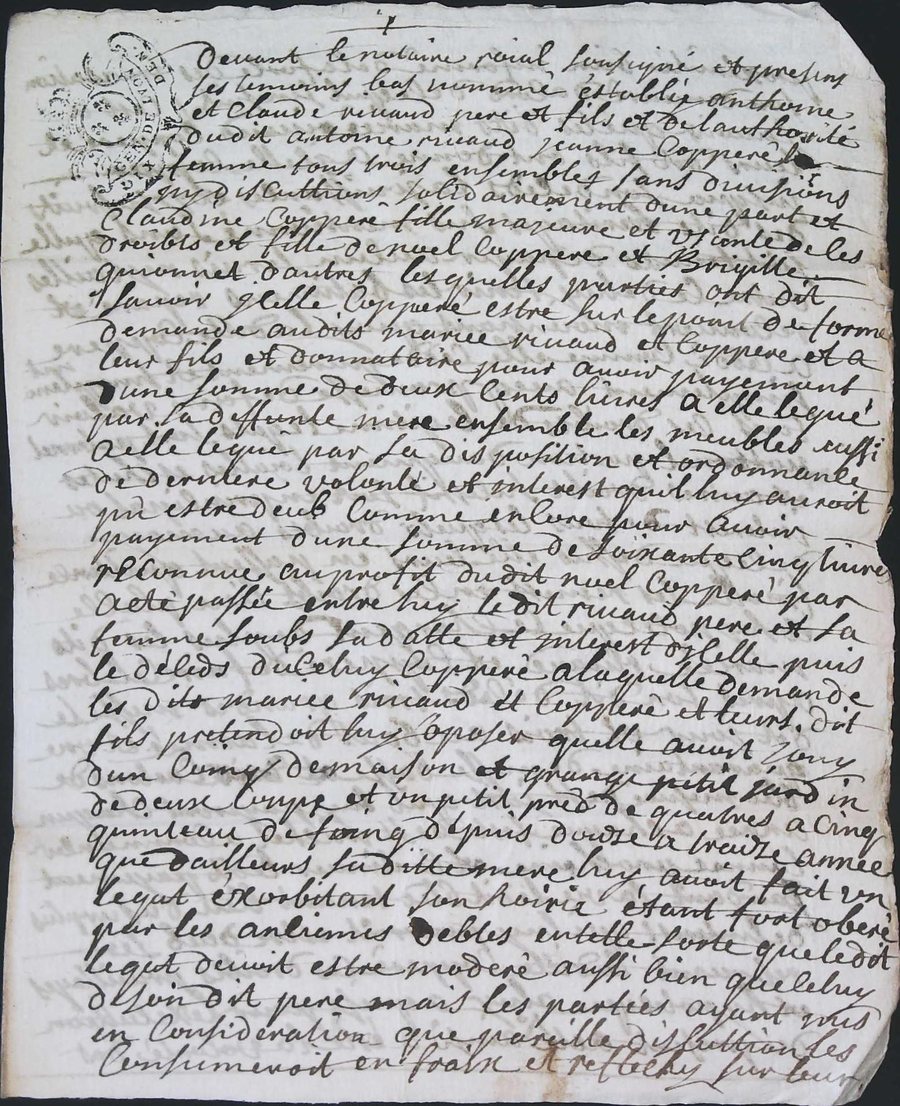 Devant le notaire roial sousigné et presens
les temoins bas nommé établis anthoine
et Claude rivaud pere et fils et de l'authorité
dudit antoine rivaud jeanne Copperé sa
femme tous trois ensembles sans divisions
ny discuttions solidairement dune part et
Claudine Copperé fille majeure et usante de ses
droibts et fille de noel Coppere et Brigille
quionnet d'autres lesquelles parties ont dit
savoir jcelle Copperé estre sur le point de forme
demande audits mariee rivaud et Coppere et a
leur fils et donnataire pour avoir payement
dune somme de deux Cents livres a elle legué
par sa deffunte mere ensemble les meubles aussi
a elle legué par sa disposition et ordonnance
de derniere volonté et interest quil luy auroit
pu estre deub Comme encore pour avoir
payement dune somme de soixante cinq livres
reconnue au profit dudit noel Copperé par
acte passée entre luy ledit rivaud pere et sa
femme soubs sa datte et interest dicelle puis
le déceds du Celuy Copperé a laquelle demande
les dits mariee rivaud et Copperé et leurs dit
fils pretendoit luy oposer quelle avoit jouy
dun Coing de maison et grange petit jardin
de deux Coupe et un petit pred de quatres a Cinq
quinteau de foing depuis douze a traize année
que dailleurs sa ditte mere luy avoit fait un
legat éxorbitant son hoirie étant fort oberé
par les anciennes debtes en telle sorte que le dit
legat devoit estre moderé aussi bien que Celuy
de son dit pere mais les parties ayant mis
en Consideration que pareille discuttion les
Consumeroit en fraix et reflechy sur leur